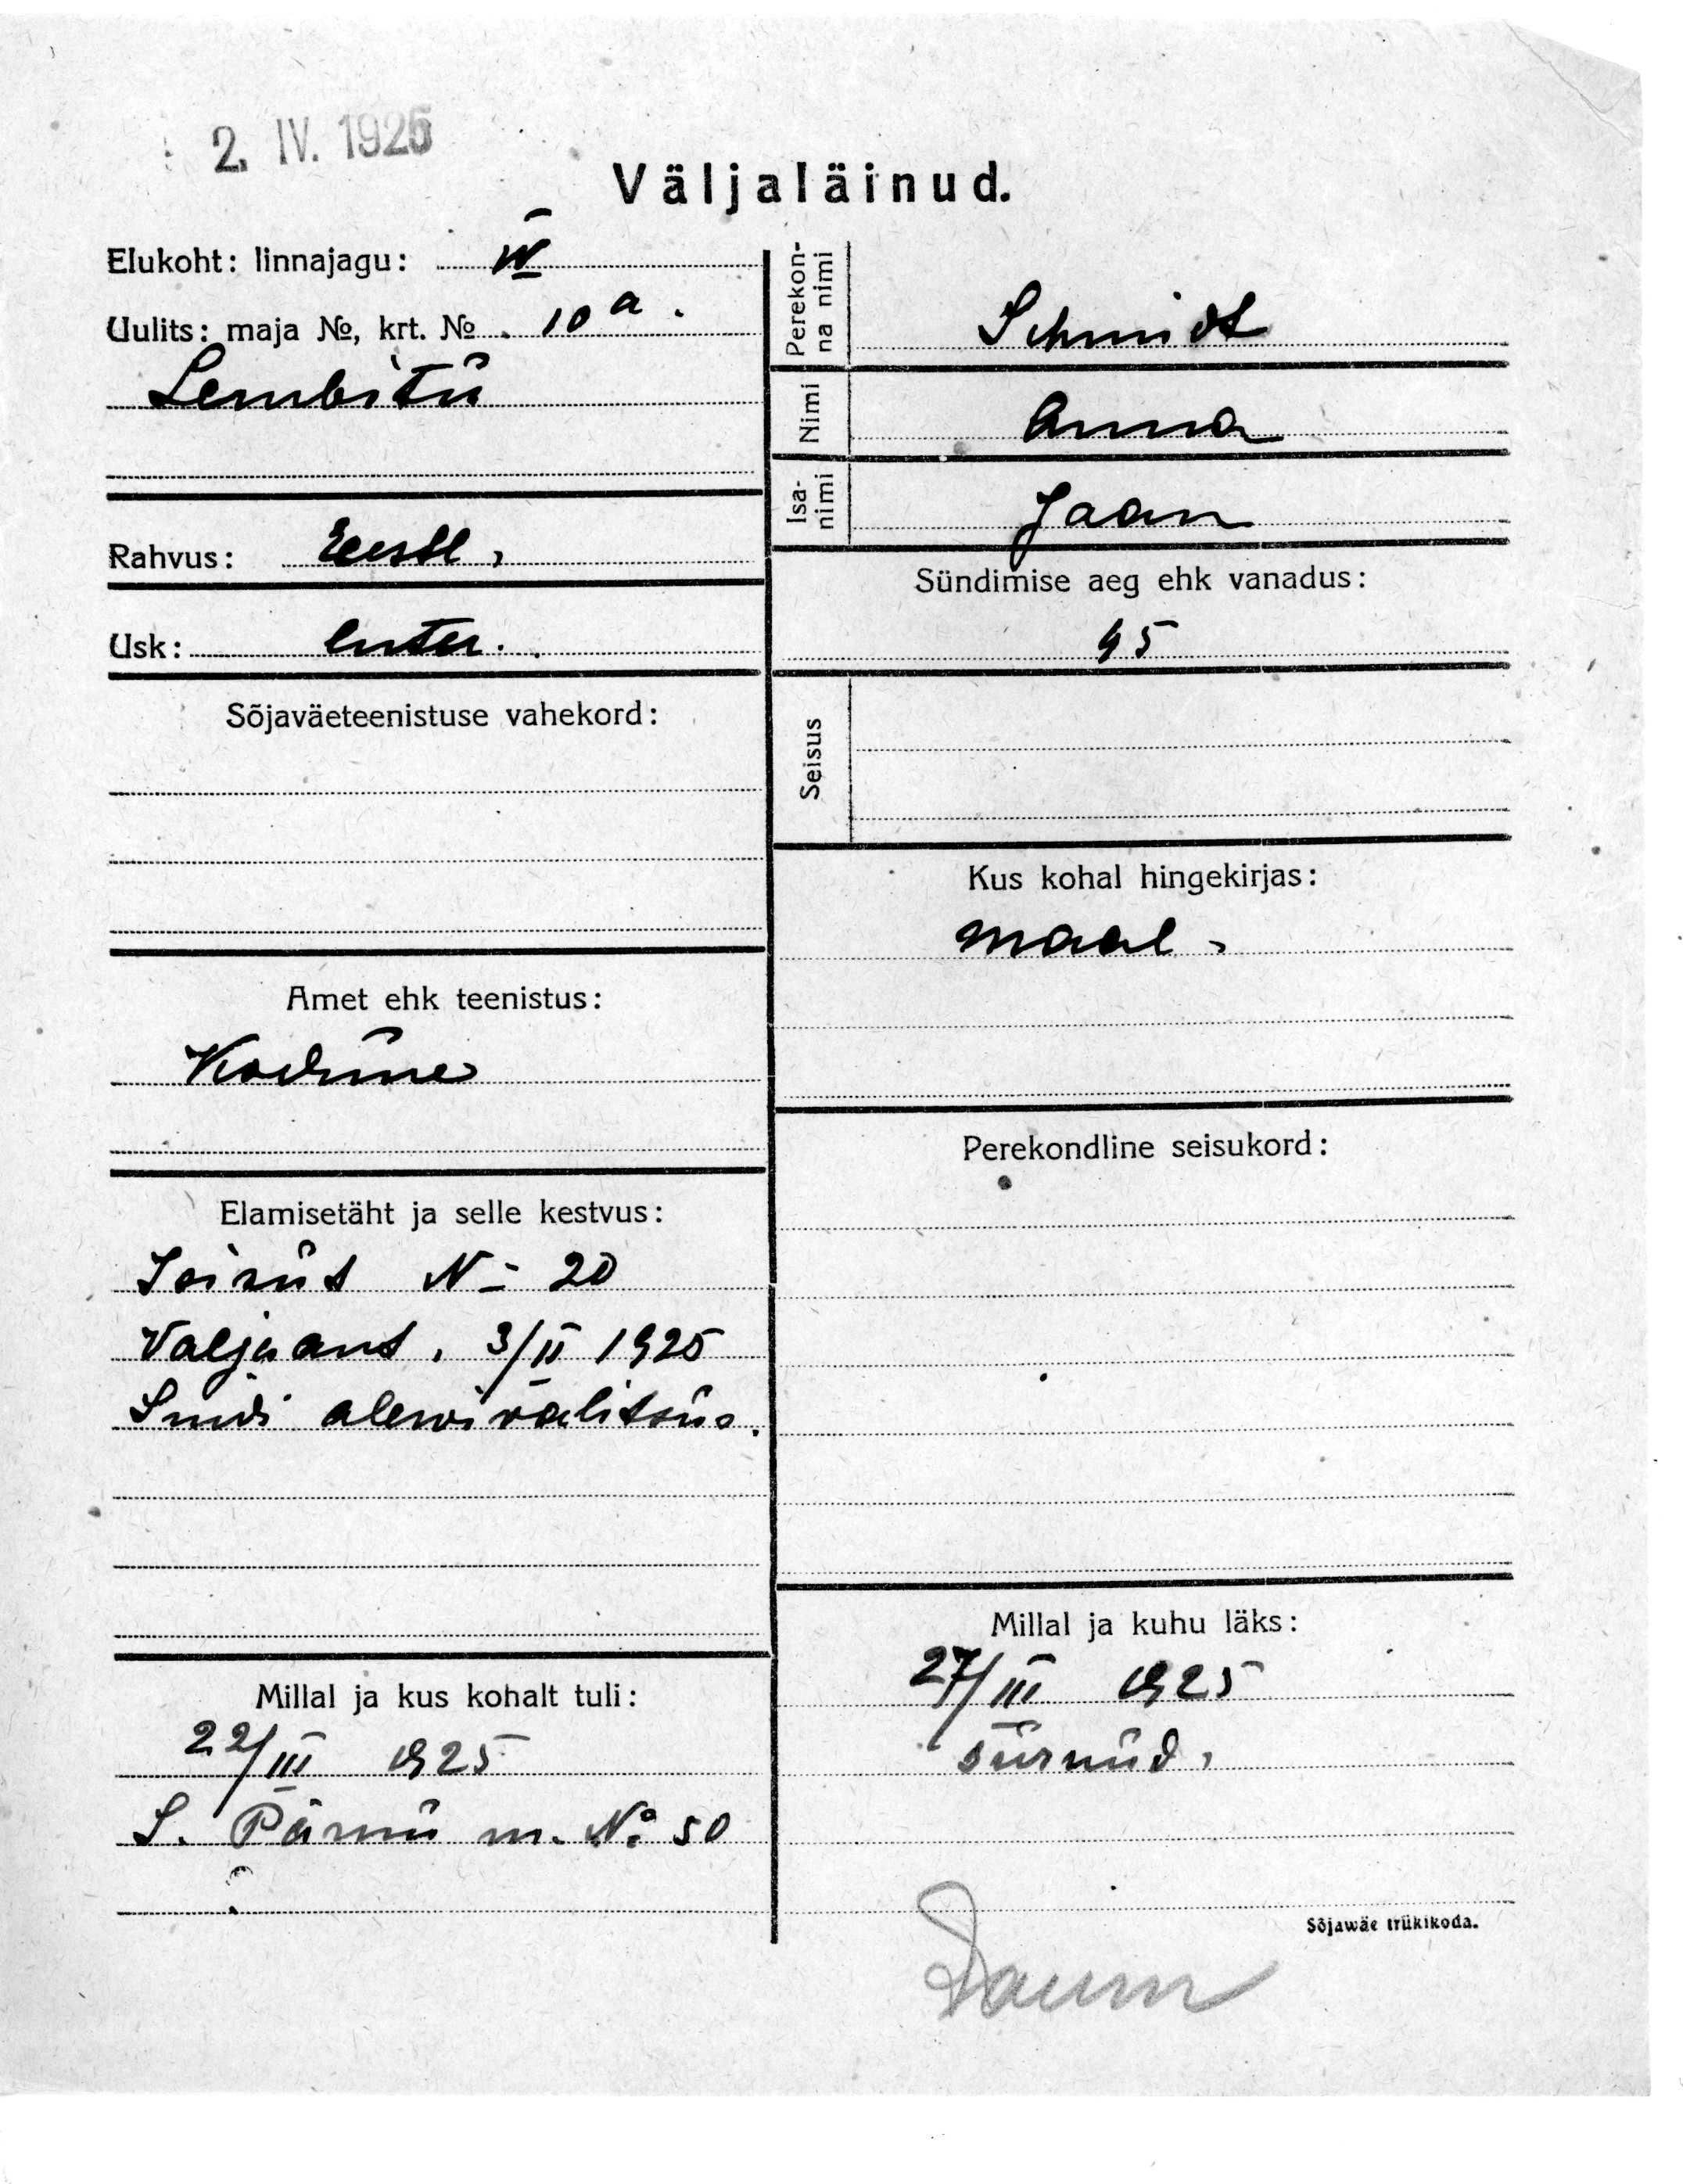 2. IV. 1925
Väljaläinud.
Elukoht: linnajagu: IV
Uulits: maja №, krt. № 10 a.
Lembitu
Rahvus: Eestl,
Usk: luter.
Sõjaväeteenistuse vahekord:
Amet ehk teenistus:
Kodune
Elamisetäht ja selle kestvus:
Isikut N- 20
Valja ant. 3/II 1925
Sindi alewi valitsus.
Millal ja kus kohalt tuli:
22/III 1925
S. Pärnu m. № 50
Perekon-
na nimi
Schmidt
Nimi
Anna
Isa-
nimi
Jaan
Sündimise aeg ehk vanadus:
45
Seisus
Kus kohal hingekirjas:
maal,
Perekondline seisukord:
Millal ja kuhu läks:
27/III 1925
surnud,
Sõjawäe trükikoda.